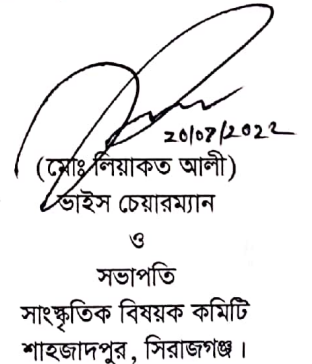 20/07/2022
(মোঃ লিয়াকত আলী)
ভাইস চেয়ারম্যান
ও
সভাপতি
সাংস্কৃতিক বিষয়ক কমিটি
শাহজাদপুর, সিরাজগঞ্জ।